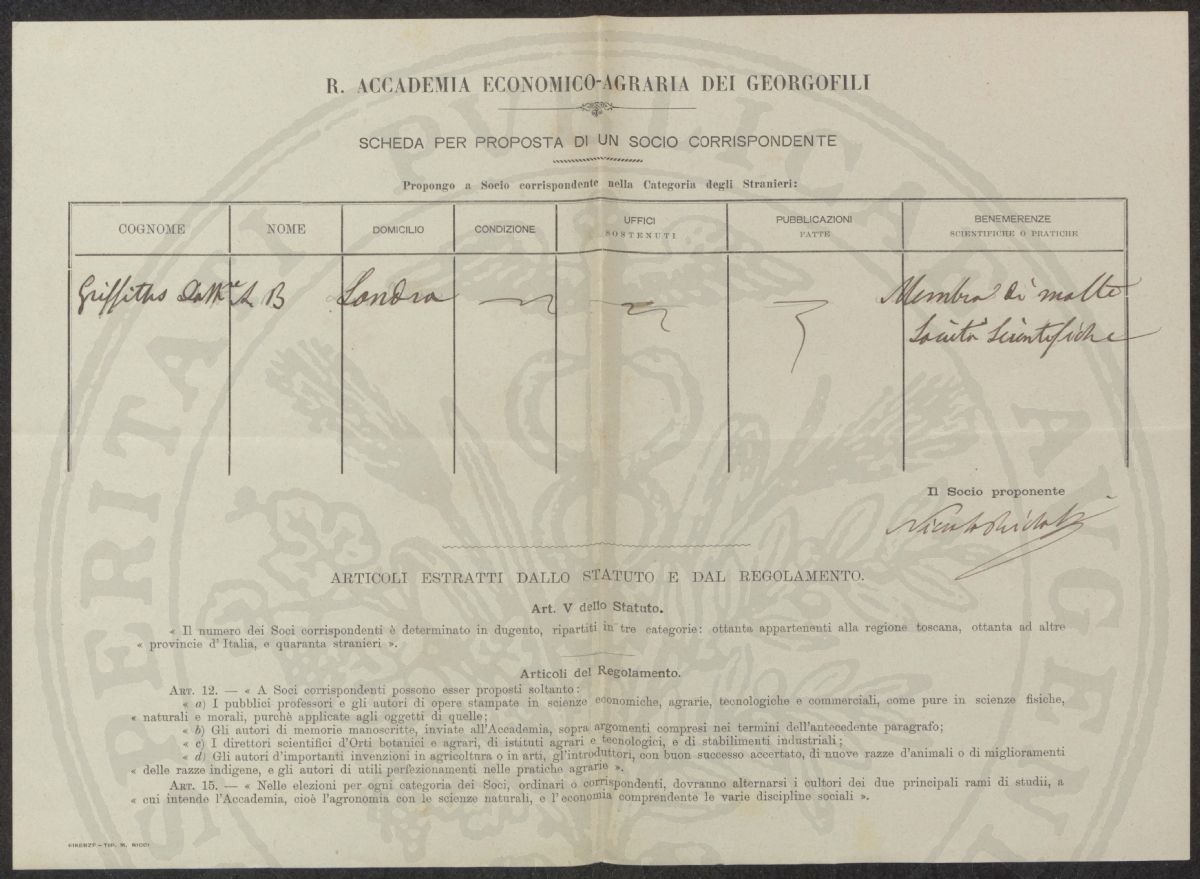 R. ACCADEMIA ECONOMICO-AGRARIA DEI GEORGOFILI
SCHEDA PER PROPOSTA DI UN SOCIO CORRISPONDENTE
Propongo a Socio corrispondente nella Categoria degli Stranieri:
COGNOME NOME DOMICILIO CONDIZIONE UFFICI SOSTENUTI PUBBLICAZIONI FATTE BENEMERENZE SCIENTIFICHE O PRATICHE
Griffiths A B Londra Membro di molte
Società Scientifiche
Il Socio proponente
ARTICOLI ESTRATTI DALLO STATUTO E DAL REGOLAMENTO.
Art. V dello Statuto.
« Il numero dei Soci corrispondenti è determinato in dugento, ripartiti in tre categorie: ottanta appartenenti alla regione toscana, ottanta ad altre
« provincie d'Italia, e quaranta stranieri ».
Articoli del Regolamento.
ART. 12. — « A Soci corrispondenti possono esser proposti soltanto:
« a) I pubblici professori e gli autori di opere stampate in scienze economiche, agrarie, tecnologiche e commerciali, come pure in scienze fisiche,
« naturali e morali, purchè applicate agli oggetti di quelle;
« b) Gli autori di memorie manoscritte, inviate all'Accademia, sopra argomenti compresi nei termini dell'antecedente paragrafo;
« c) I direttori scientifici d'Orti botanici e agrari, di istituti agrari e tecnologici, e di stabilimenti industriali;
« d) Gli autori d'importanti invenzioni in agricoltura o in arti, gl'introduttori, con buon successo accertato, di nuove razze d'animali o di miglioramenti
« delle razze indigene, e gli autori di utili perfezionamenti nelle pratiche agrarie ».
ART. 15. — « Nelle elezioni per ogni categoria dei Soci, ordinari o corrispondenti, dovranno alternarsi i cultori dei due principali rami di studii, a
« cui intende l'Accademia, cioè l'agronomia con le scienze naturali, e l'economia comprendente le varie discipline sociali ».
FIRENZE – TIP. M. RICCI